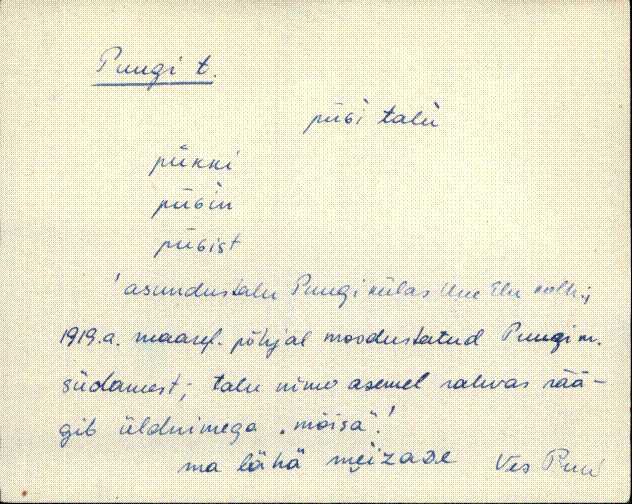 Puugi t.
pūɢi̬ talu̬
pūkki
pūɢin
pūɢist
'asundustalu Puugi külas Uue Elu kolh.;
1919.a. maaref. põhjal moodustatud Puugi m.
südamest; talu nime asemel rahvas rää-
gib üldnimega „mõisa"!
ma lähä mẹizaᴅe Ves Puu